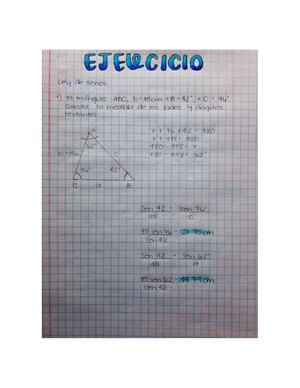 EJERCICIO
Ley de senos
1) El triángulo ABC, b=15cm <B=42°, <C=76°
Calcula la medida de los lados y ángulos
restantes
A
62°
b=15cm
c
76°
42°
C
a
B
x + 76 + 42 = 180
x + 118 = 180
180 - 118 = x
180 - 118 = 62°
sen 42 = sen 76°
15 c
15 sen 76 = 21.75cm
sen 42
sen 42 = sen 62°
15 a
15 sen 62 = 19.79cm
sen 42